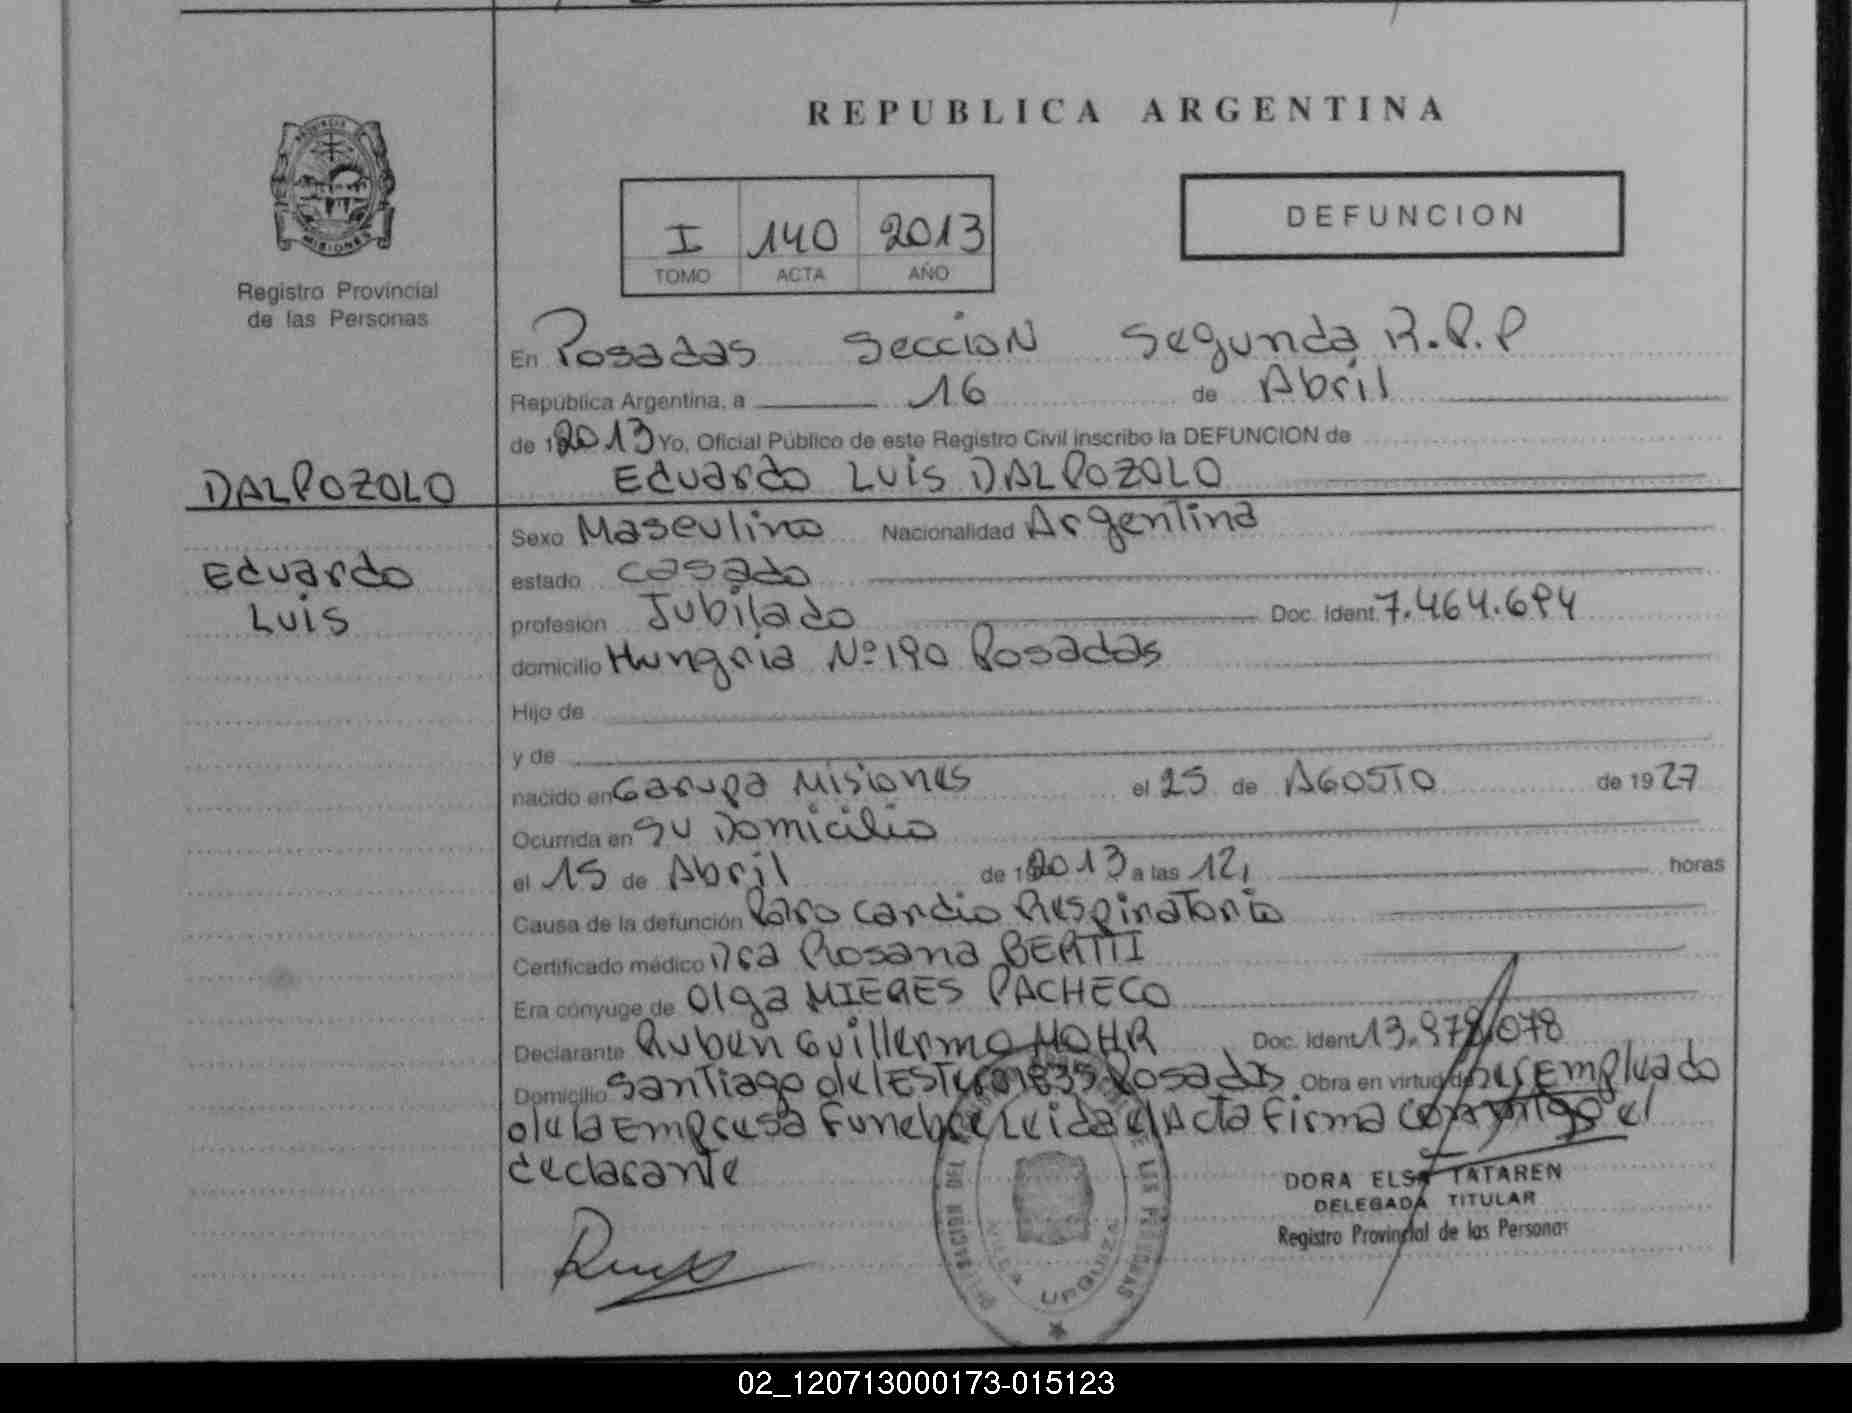 REPUBLICA ARGENTINA
DEFUNCION
I 140 2013
TOMO ACTA AÑO
MISIONES
Registro Provincial
de las Personas
En Posadas Seccion Segunda R.P.P
República Argentina, a 16 de Abril
de 2013 Yo, Oficial Público de este Registro Civil inscribo la DEFUNCION de
DALPOZOLO
Eduardo Luis DALPOZOLO
Eduardo
Luis
Sexo Masculino Nacionalidad Argentina
estado casado
profesión Jubilado Doc. Ident. 7.464.694
domicilio Hungria Nº 190 Posadas
Hijo de
y de
nacido en Garupa Misiones el 25 de AGOSTO de 1927
Ocurrida en su Domicilio
el 15 de Abril de 2013 a las 12, horas
Causa de la defunción Paro cardio Respiratorio
Certificado médico Dra Rosana BERTTI
Era cónyuge de Olga MIERES PACHECO
Declarante Ruben Guillermo MOHR Doc. Ident. 13.978.078
Domicilio Santiago del Estero 1835 Posadas Obra en virtud de ser Empleado
de la Empresa Funebre Leida el Acta Firma conmigo el
declarante
DORA ELSA TATAREN
DELEGADA TITULAR
Registro Provincial de las Personas
VILLA URQUIZA
02_120713000173-015123